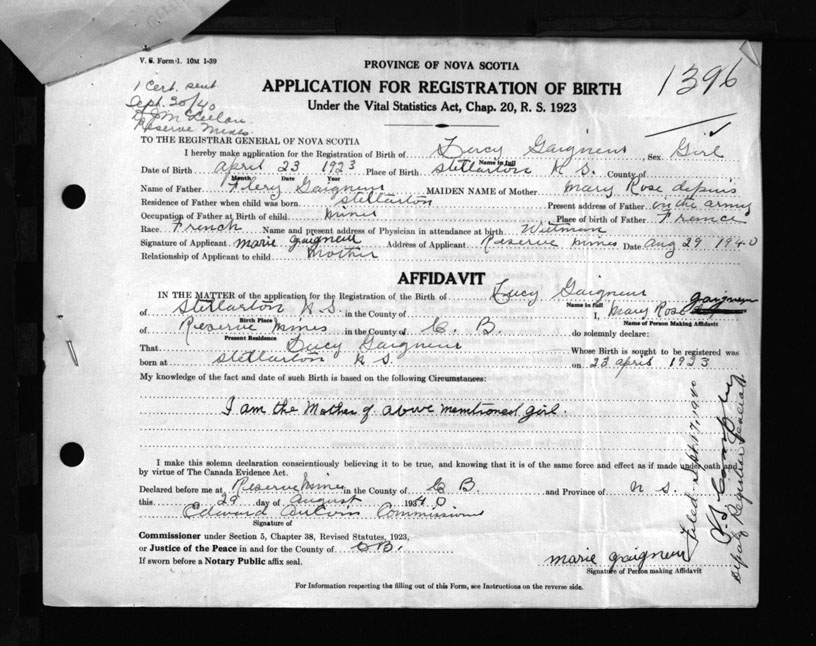 V. S. Form 1. 10M 1-39
PROVINCE OF NOVA SCOTIA
APPLICATION FOR REGISTRATION OF BIRTH
Under the Vital Statistics Act, Chap. 20, R. S. 1923
1396
1 Cert. sent
Sept. 30/40
Reserve Mines
TO THE REGISTRAR GENERAL OF NOVA SCOTIA
I hereby make application for the Registration of Birth of Lucy Gaigneur, Sex Girl
Name in full
Date of Birth April 23 1923 Place of Birth Stellarton N S. County of
Month Date Year
Name of Father Flery Gaigneur MAIDEN NAME of Mother Mary Rose depuis
Residence of Father when child was born Stellarton Present address of Father in the army
Occupation of Father at Birth of child miner Place of birth of Father France
Race French Name and present address of Physician in attendance at birth
Signature of Applicant marie gaigneur Address of Applicant Reserve Mines Date Aug 29 1940
Relationship of Applicant to child mother
AFFIDAVIT
IN THE MATTER of the application for the Registration of the Birth of Lucy Gaigneur
Name in Full
of Stellarton N S. in the County of I, Mary Rose gaigneur
Birth Place Name of Person Making Affidavit
of Reserve Mines in the County of C. B. do solemnly declare:
Present Residence
That Lucy Gaigneur Whose Birth is sought to be registered was
born at Stellarton N S. on 23 april 1923
My knowledge of the fact and date of such Birth is based on the following Circumstances:
I am the Mother of above memtioned girl.
I make this solemn declaration conscientiously believing it to be true, and knowing that it is of the same force and effect as if made under oath and
by virtue of The Canada Evidence Act.
Declared before me at Reserve Mines in the County of C B. and Province of N S
this 29 day of August 1940
Edward Commissioner
Signature of
Commissioner under Section 5, Chapter 38, Revised Statutes, 1923,
or Justice of the Peace in and for the County of C B.
If sworn before a Notary Public affix seal.
marie gaigneur
Signature of Person making Affidavit
For Information respecting the filling out of this Form, see Instructions on the reverse side.
Filed Sept. 17, 1940
Deputy Registrar General